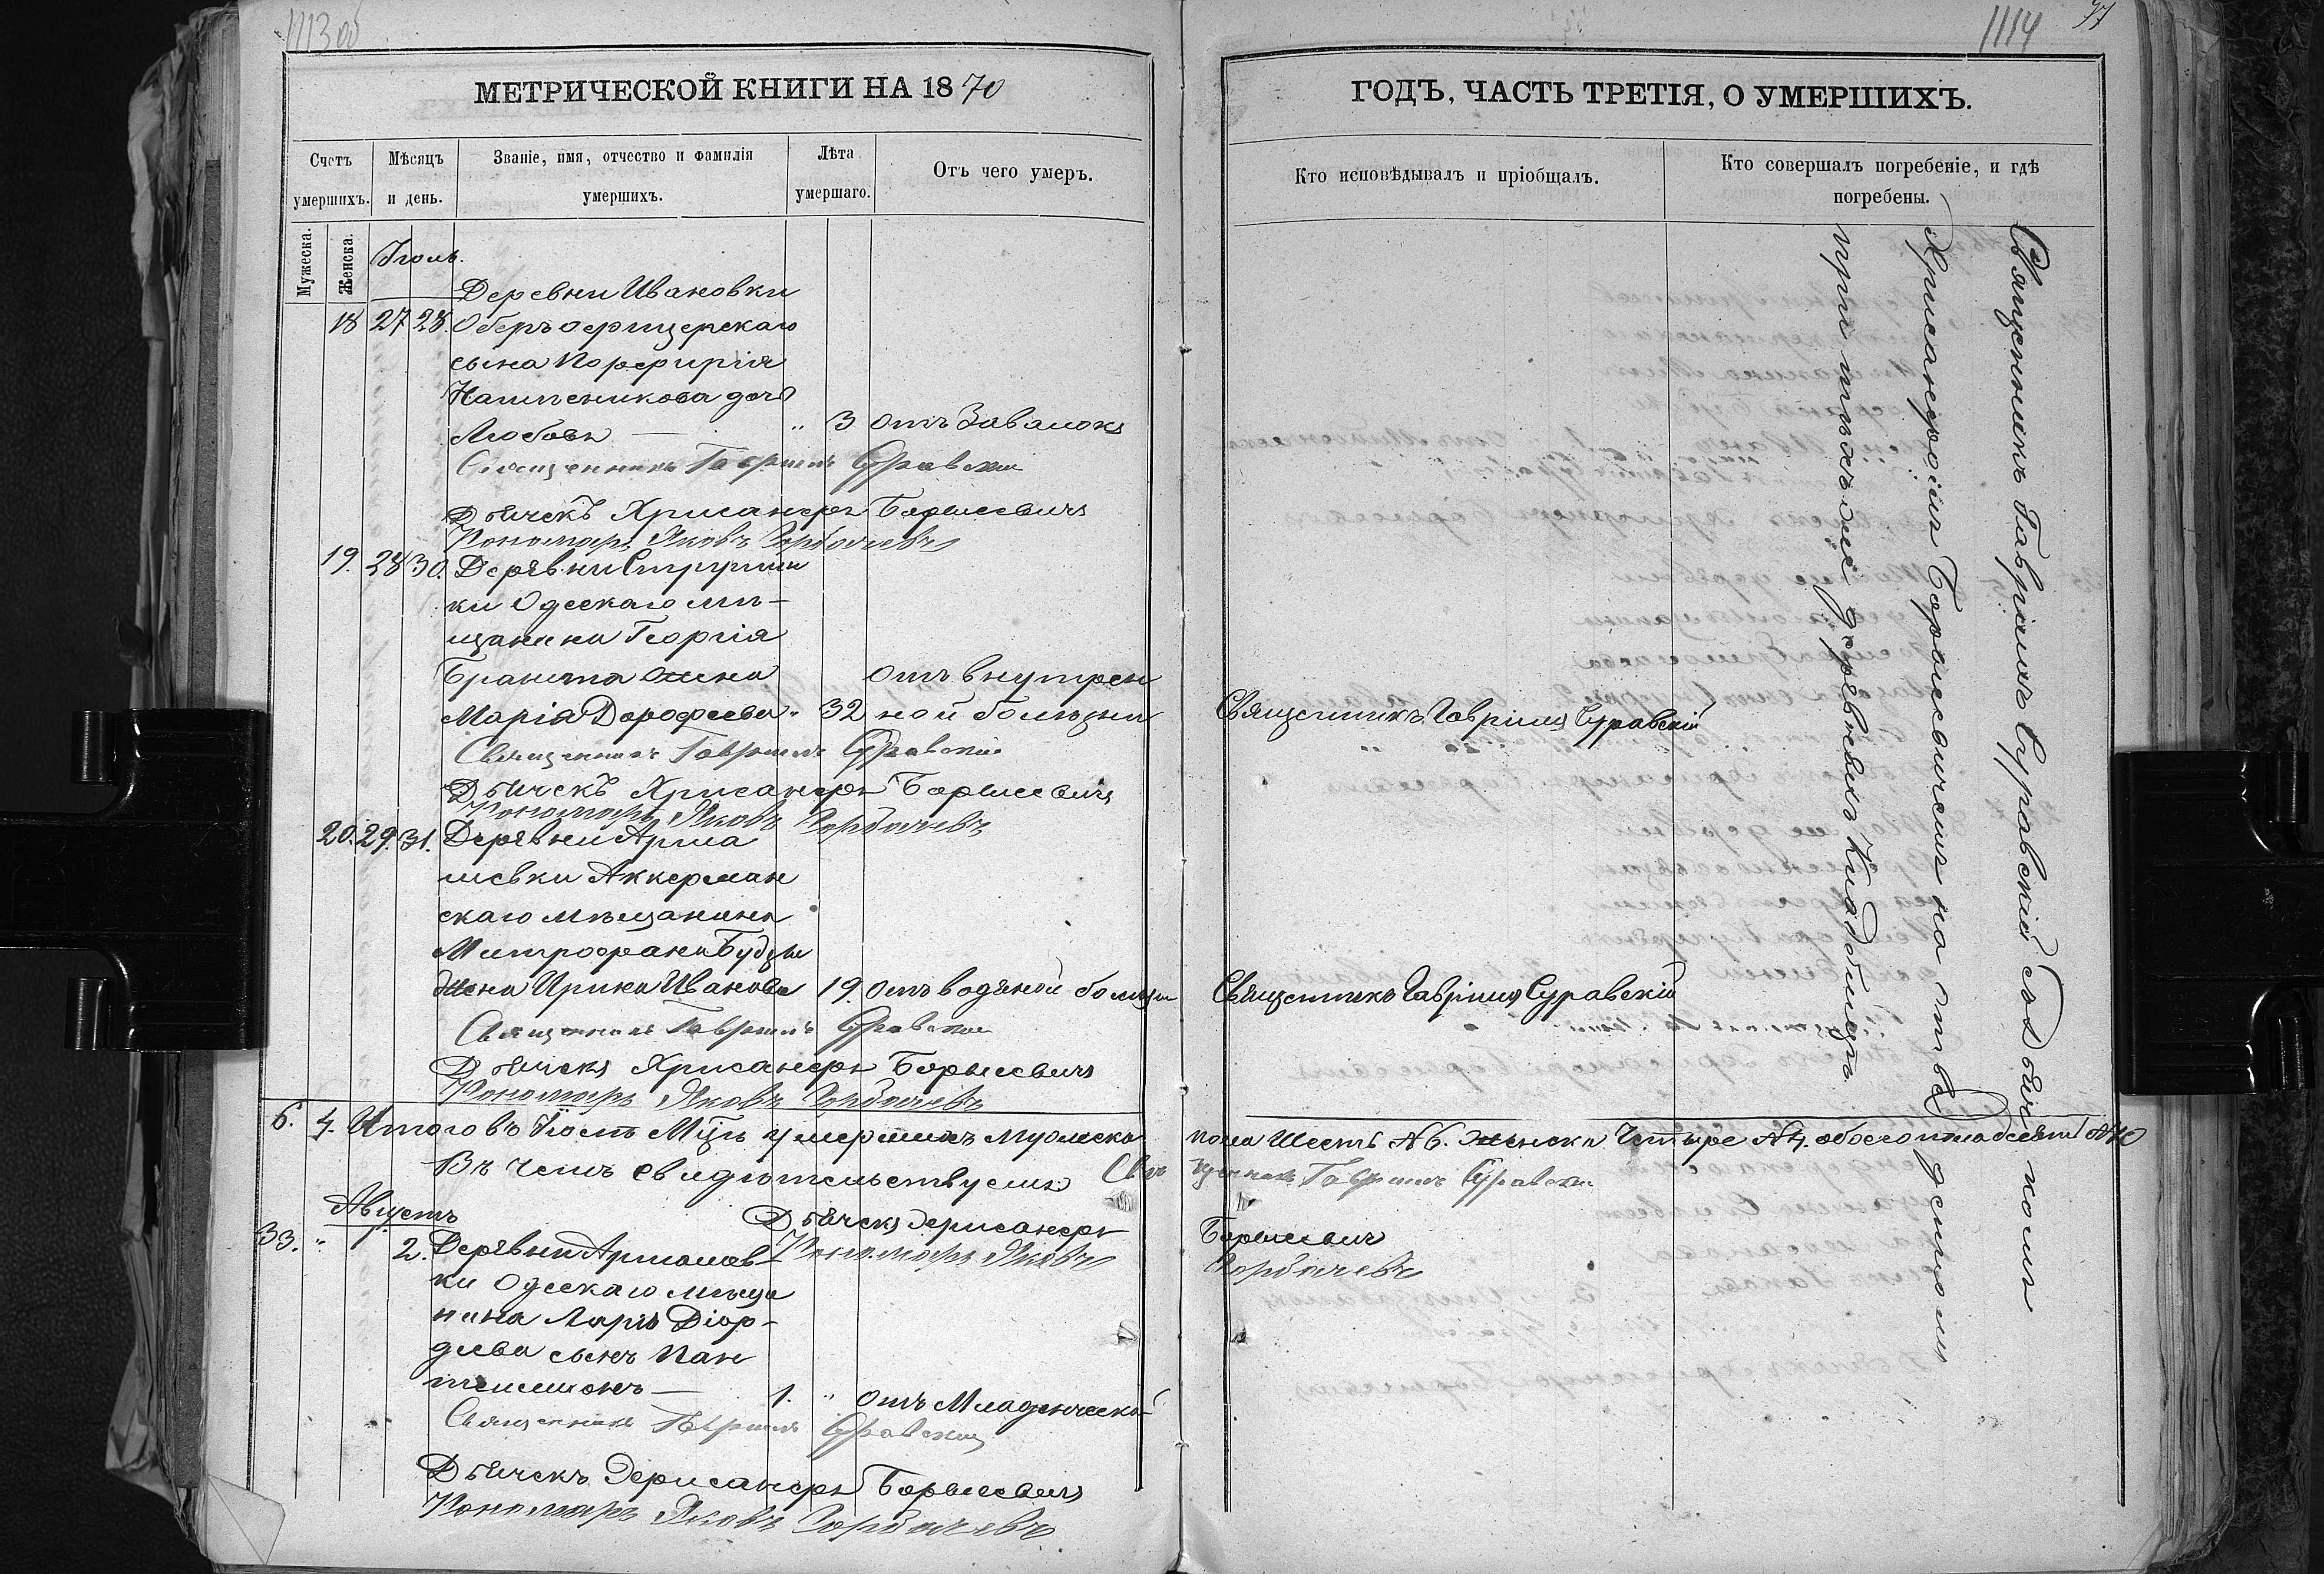 1113 об
МЕТРИЧЕСКОЙ КНИГИ НА 1870
Счетъ умершихъ.
Мѣсяцъ и день.
Званіе, имя, отчество и фамилія умершихъ.
Лѣта умершаго.
Отъ чего умеръ.
Мужеска.
Женска.
Іюль.
Деревни Ивановки
18 27 28. Оберъ офицерскаго
сына Порфирія
дочь
Любовь — " 3 отъ Завалокъ
Священникъ Гавріилъ Суравскій
Дьячекъ Хрисанфъ Борысевичъ
Пономарь Яковъ Горбачевъ
19. 28 30. Деревни
ки Одескаго мѣ-
щанина Георгія
жена отъ внутрен
Марія Дорофеева " 32 ной болѣзни
Священникъ Гавріилъ Суравскій
Дьячекъ Хрисанфъ Борысевичъ
Пономарь Яковъ Горбачевъ
20. 29. 31. Деревни Арма
шевки Аккерман
скаго мѣщанина
Митрофана
жена Ирина Иванова 19. отъ водяной болѣзни
Священникъ Гавріилъ Суравскій
Дьячекъ Хрисанфъ Борысевичъ
Пономарь Яковъ Горбачевъ
6. 4. Итого въ Іюлѣ Мцѣ умершихъ мужеска
Въ чемъ свидѣтельствуемъ Свя
Августъ
Дьячекъ Хрисанфъ
33. " 2. Деревни Армашев- Пономарь Яковъ
ки Одескаго мѣща
нина Діор-
діева сынъ Пан
телеимонъ — 1. " отъ Младенческой
Священникъ Гавріилъ Суравскій
Дьячекъ Хрисанфъ Борысевичъ
Пономарь Яковъ Горбачевъ
1114
97
ГОДЪ, ЧАСТЬ ТРЕТІЯ, О УМЕРШИХЪ.
Кто исповѣдывалъ и пріобщалъ.
Кто совершалъ погребеніе, и гдѣ погребены.
Священникъ Гавріилъ Суравскій
Священникъ Гавріилъ Суравскій
пола Шесть №6. женска Четыре №4. обоего пола десять №10
щенникъ Гавріилъ Суравскій
Борысевичъ
Горбачевъ
Священникъ Гавріилъ Суравскій съ Дьячкомъ
Хрисанфомъ Борысевичемъ на отведенномъ
при тѣхъ же деревняхъ Кладбищѣ